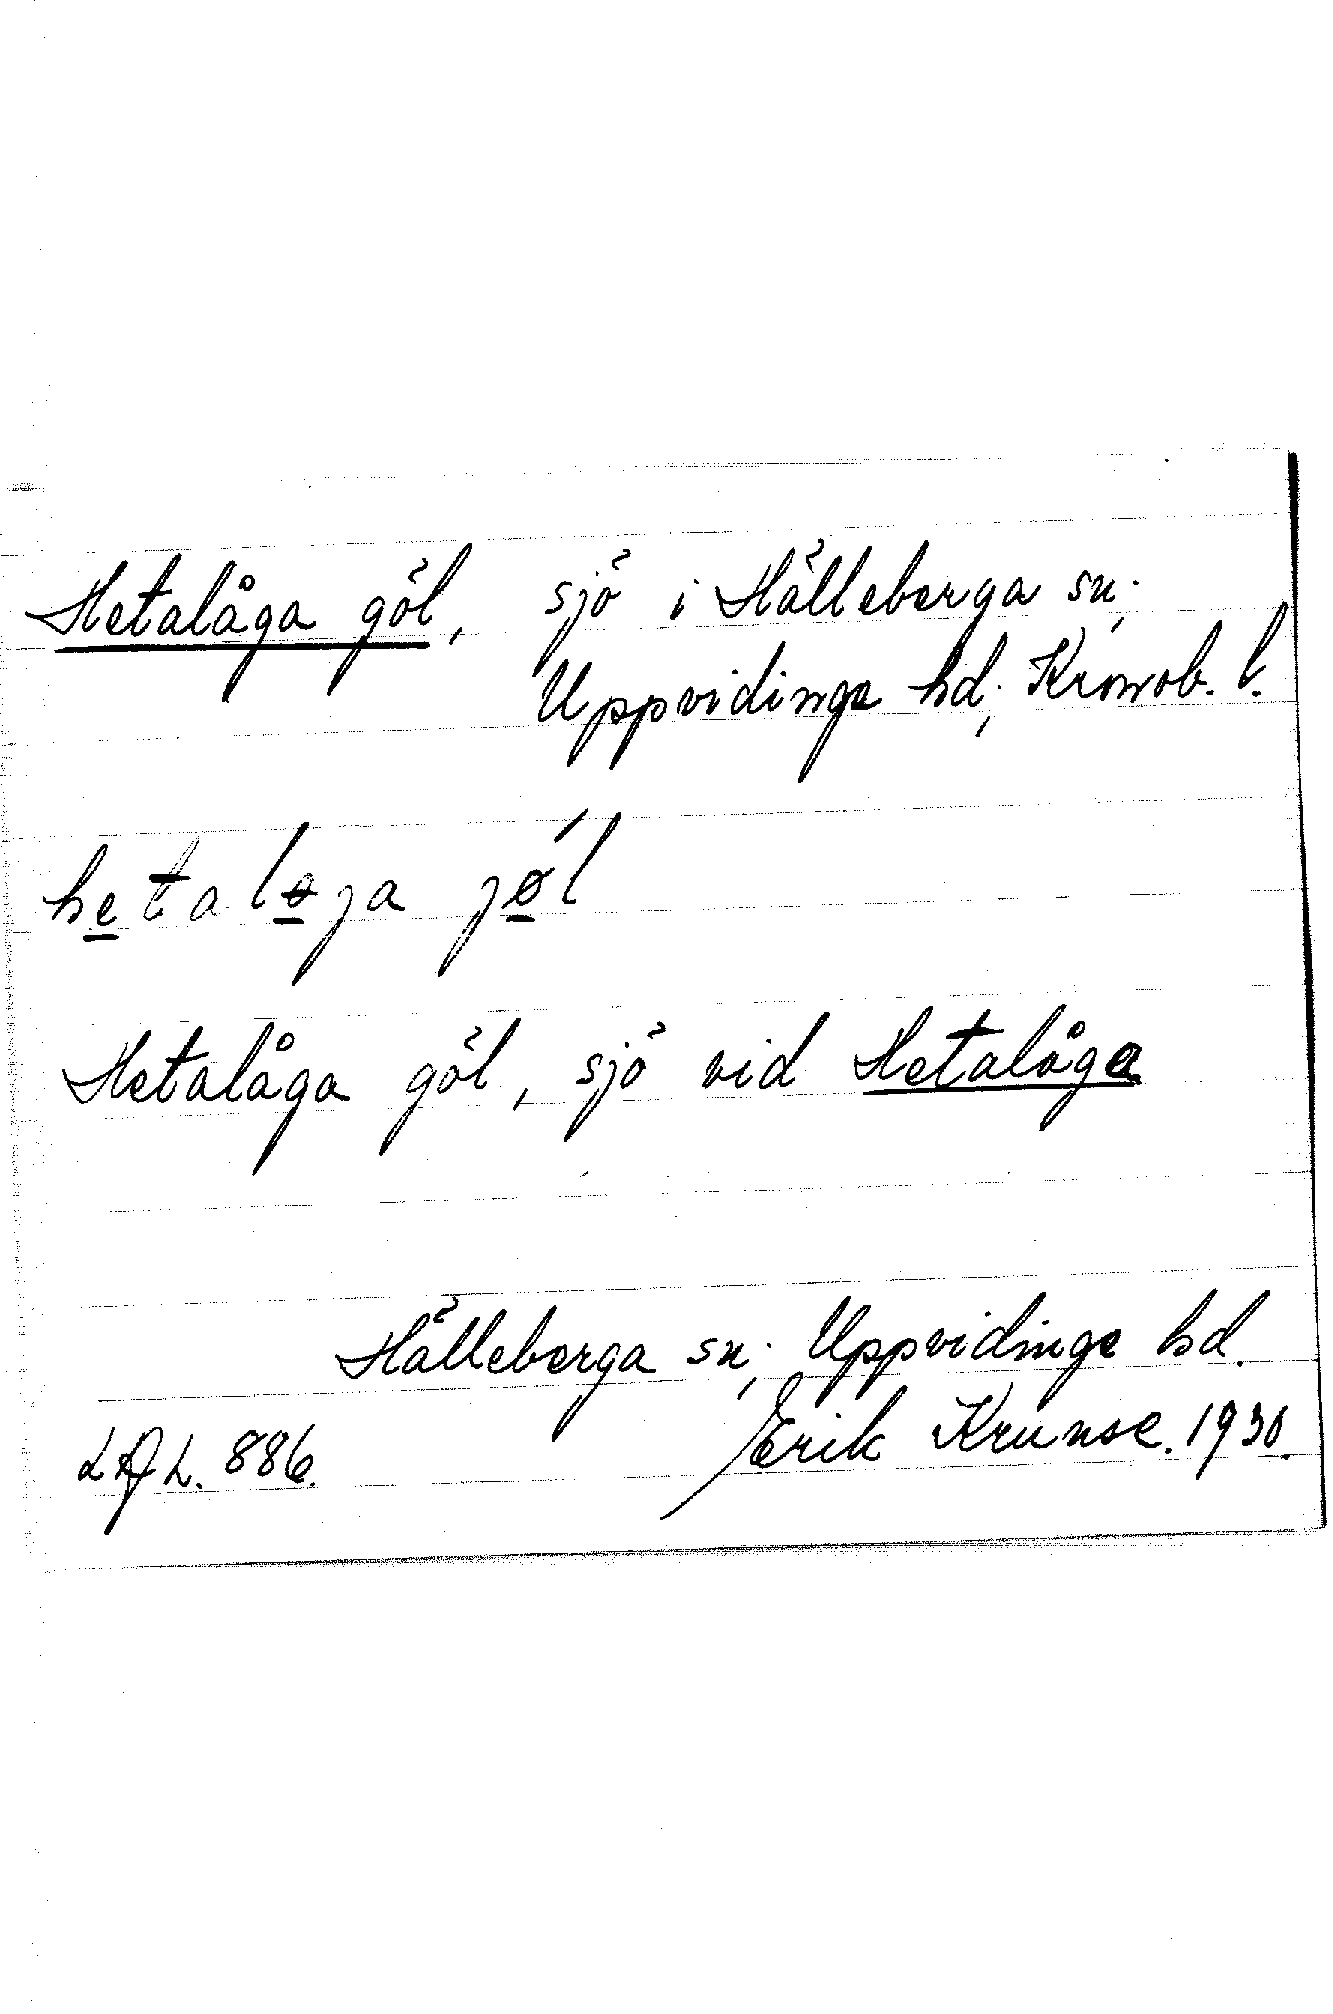 Hetalåga göl, sjö i Hälleberga sn;
Uppvidinge hd; Kronob. l.
hetaloga jøl
Hetalåga göl, sjö vid Hetalåga
Hälleberga sn; Uppvidinge hd.
LAL. 886. Erik Krunse. 1930.